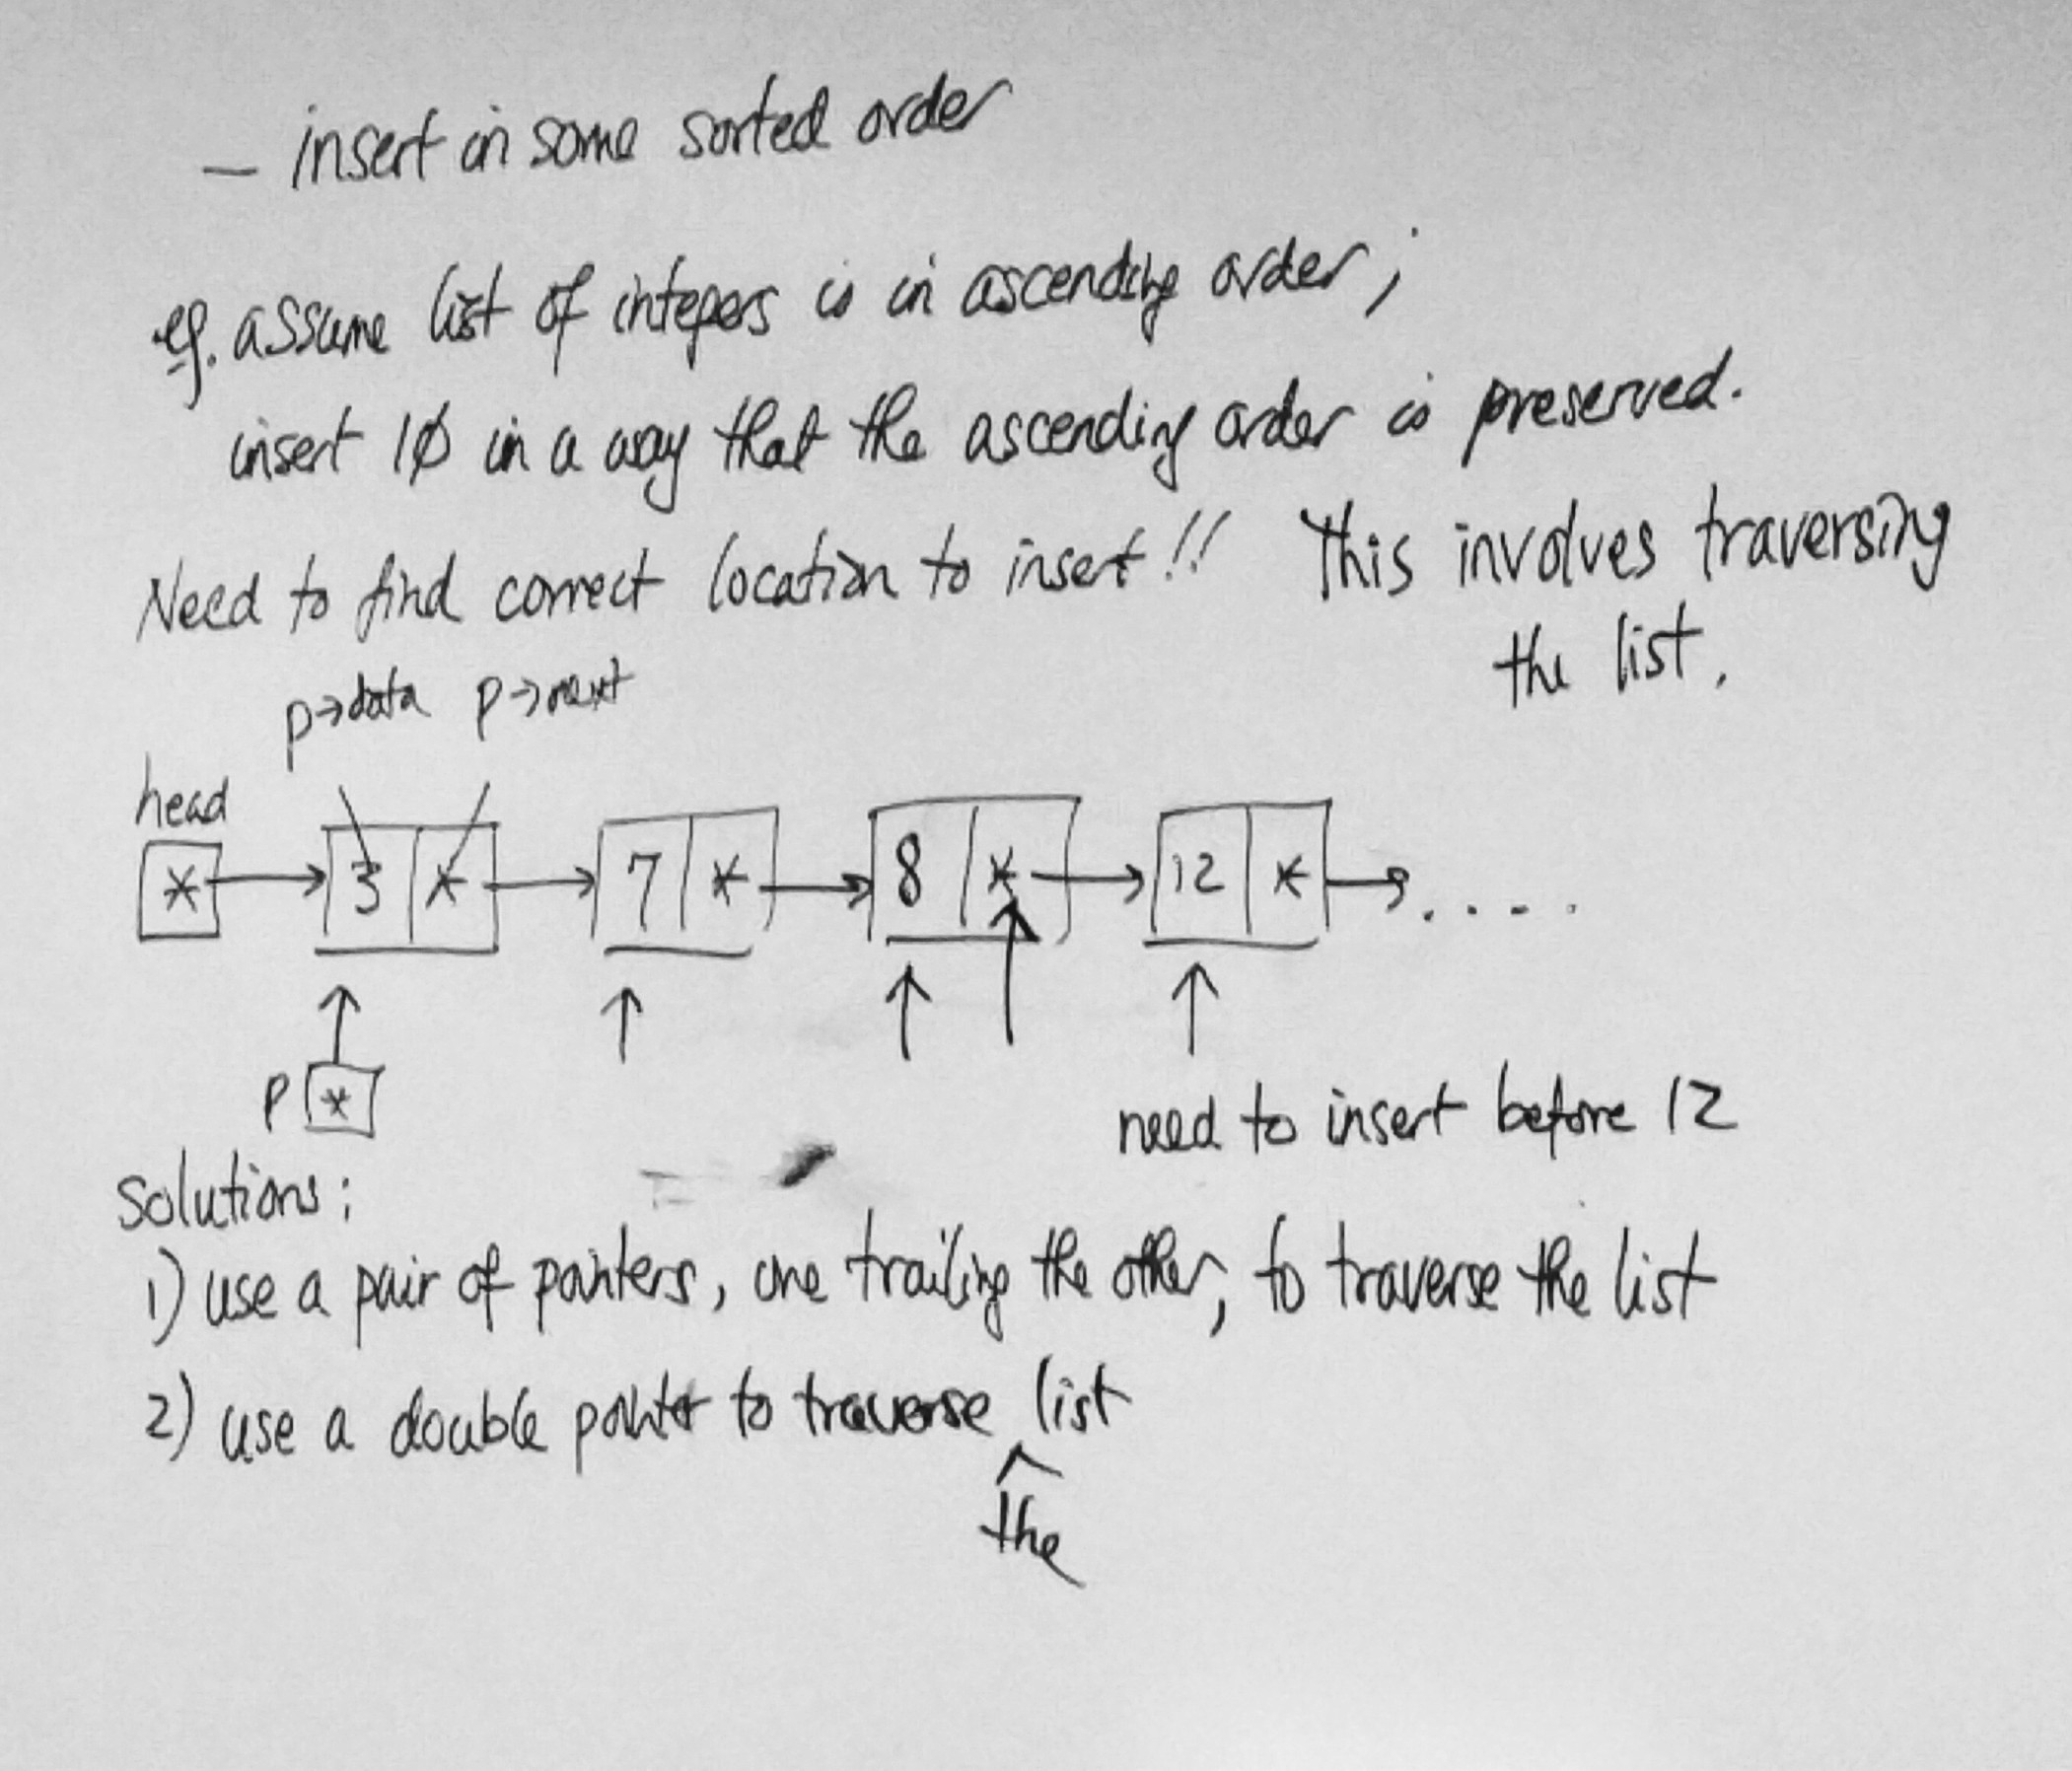 – insert in some sorted order
eg. assume list of integers is in ascending order;
insert 1Ø in a way that the ascending order is preserved.
Need to find correct location to insert!! This involves traversing
the list.
p→data p→next
head
* → 3 | * → 7 | * → 8 | * → 12 | * → . . . . .
p *
need to insert before 12
solutions:
1) use a pair of pointers, one trailing the other, to traverse the list
2) use a double pointer to traverse list
^
the